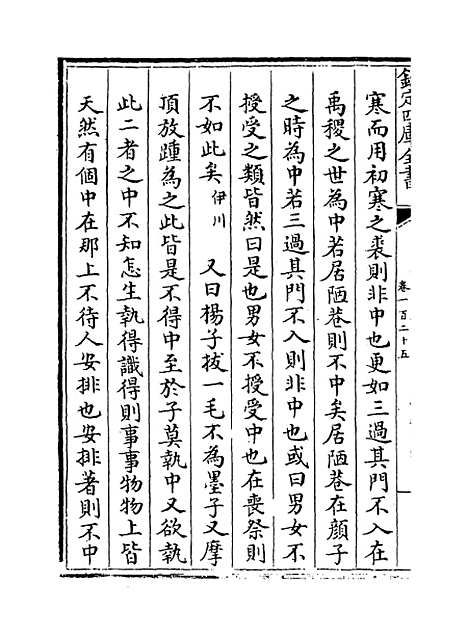 欽定四庫全書
卷一百二十五
寒而用初寒之裘則非中也更如三過其門不入在
禹稷之世為中若居陋巷則不中矣居陋巷在顔子
之時為中若三過其門不入則非中也或曰男女不
授受之類皆然曰是也男女不授受中也在喪祭則
不如此矣伊川　又曰楊子拔一毛不為墨子又摩
項放踵為之此皆是不得中至於子莫執中又欲執
此二者之中不知怎生執得識得則事事物物上皆
天然有個中在那上不待人安排也安排著則不中